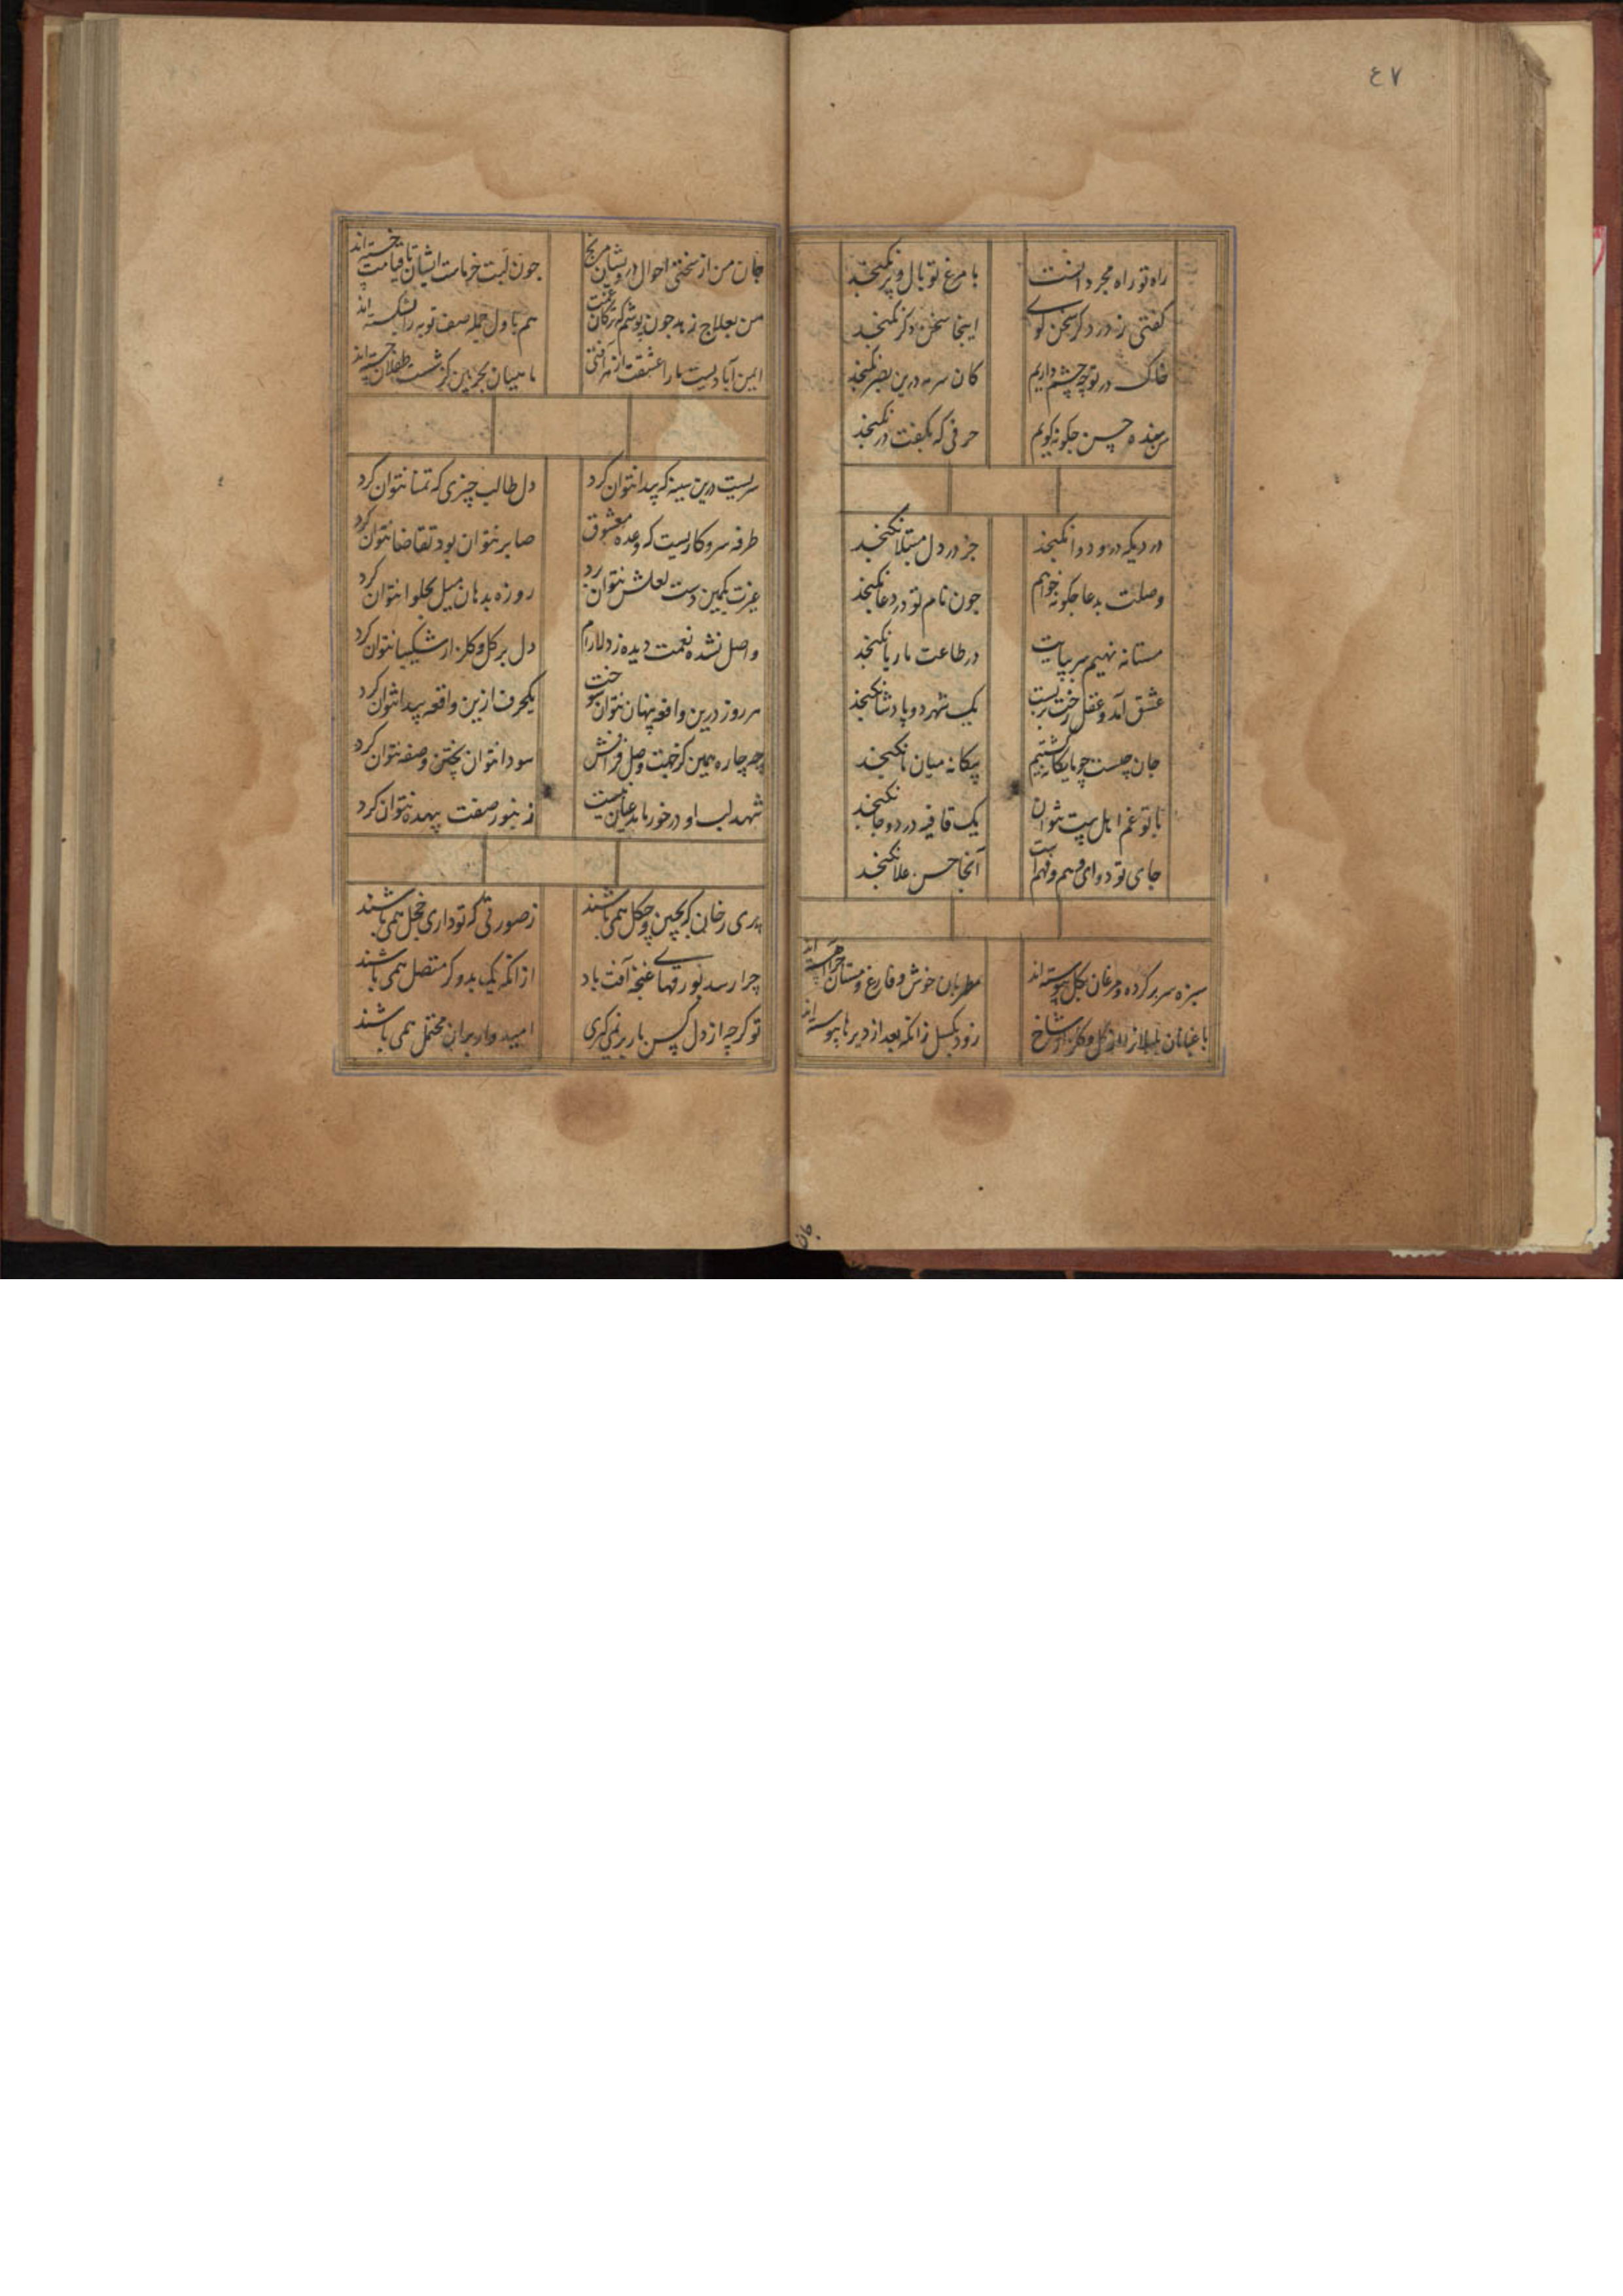 ٤٧
راه تو راه مجردانست با مرغ تو بال و پر نکنجد
کفتی ز درد دکر سخن کوی اینجا سخن دکر نکنجد
خاک در تو چه چشم داریم کان سرمه درین بصر نکنجد
من بنده حسن جکونه کویم حرفی که بکفت در نکنجد
دردیکه درو دوا نکنجد جز در دل مبتلا نکنجد
وصلت بدعا جکونه خواهم جون نام تو در دعا نکنجد
مستانه نهیم سر بپایت در طاعت ما ریا نکنجد
عشق آمد و عقل رخت بربست یک شهر دو پادشا نکنجد
جان چیست چو ما یکانه کشتیم بیکانه میان ما نکنجد
با تو غم اهل بیت نتوان یک قافیه در دو جا نکنجد
جای تو ورای وهم و فهم است آنجا حسن علا نکنجد
سبزه سر بر کرده و مرغان بکل پیوسته اند مطربان خوش و فارغ و مستان
باغبانان بلبلانرا از کل و کلزار و شاخ زود مکسل زانکه بعد از دیرها پیوسته اند
جان
جان من از سختی احوال درویشان مرنج جون لبت خرماست ایشان تا قیامت خسته اند
من بعلاج زهد جون پوشم که ترکان غمت هم باول حمله صف توبه را بشکسته اند
ایمن آبادیست ما را عشقت از هر آفتی ماهیان بحر بین کز شست طفلان جسته اند
سریست درین سینه که پیدا نتوان کرد دل طالب چیزی که تمنا نتوان کرد
طرفه سر و کاریست که وعده معشوق صابر نتوان بود تقاضا نتوان کرد
عزت بکمین دست بلعلش نتوان برد روزه بدهان میل بحلوا نتوان کرد
واصل نشده نعمت دیده ز دلارام دل بر کل و کلزار شکیبا نتوان کرد
هر روز درین واقعه پنهان نتوان سوخت یکحرف ازین واقعه پیدا نتوان کرد
چه چاره همین کز خمت وصل فراقش سودا نتوان پختن و صفه نتوان کرد
شهد لب او در خور ما بد عیان نیست زنبور صفت بیهده نتوان کرد
پری رخان که بچین و چکل همی باشند ز صورتی که تو داری خجل همی باشند
چرا رسد بورقهای غنچه آفت باد از آنکه یک بدو کر متصل همی باشند
تو کرچه از دل کس بار بر نمی کری امیدوار بجان محتمل همی باشند